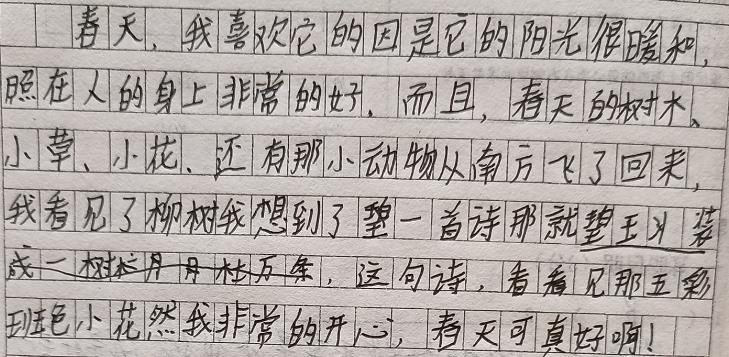 春天，我喜欢它的因是它的阳光很暖和，
照在人的身上非常的好，而且，春天的树木、
小草、小花、还有那小动物从南方飞了回来，
我看见了柳树我想到了一首诗那就玉
成一树万条，这句诗，看看见那五彩
色小花然我非常的开心，春天可真好啊！